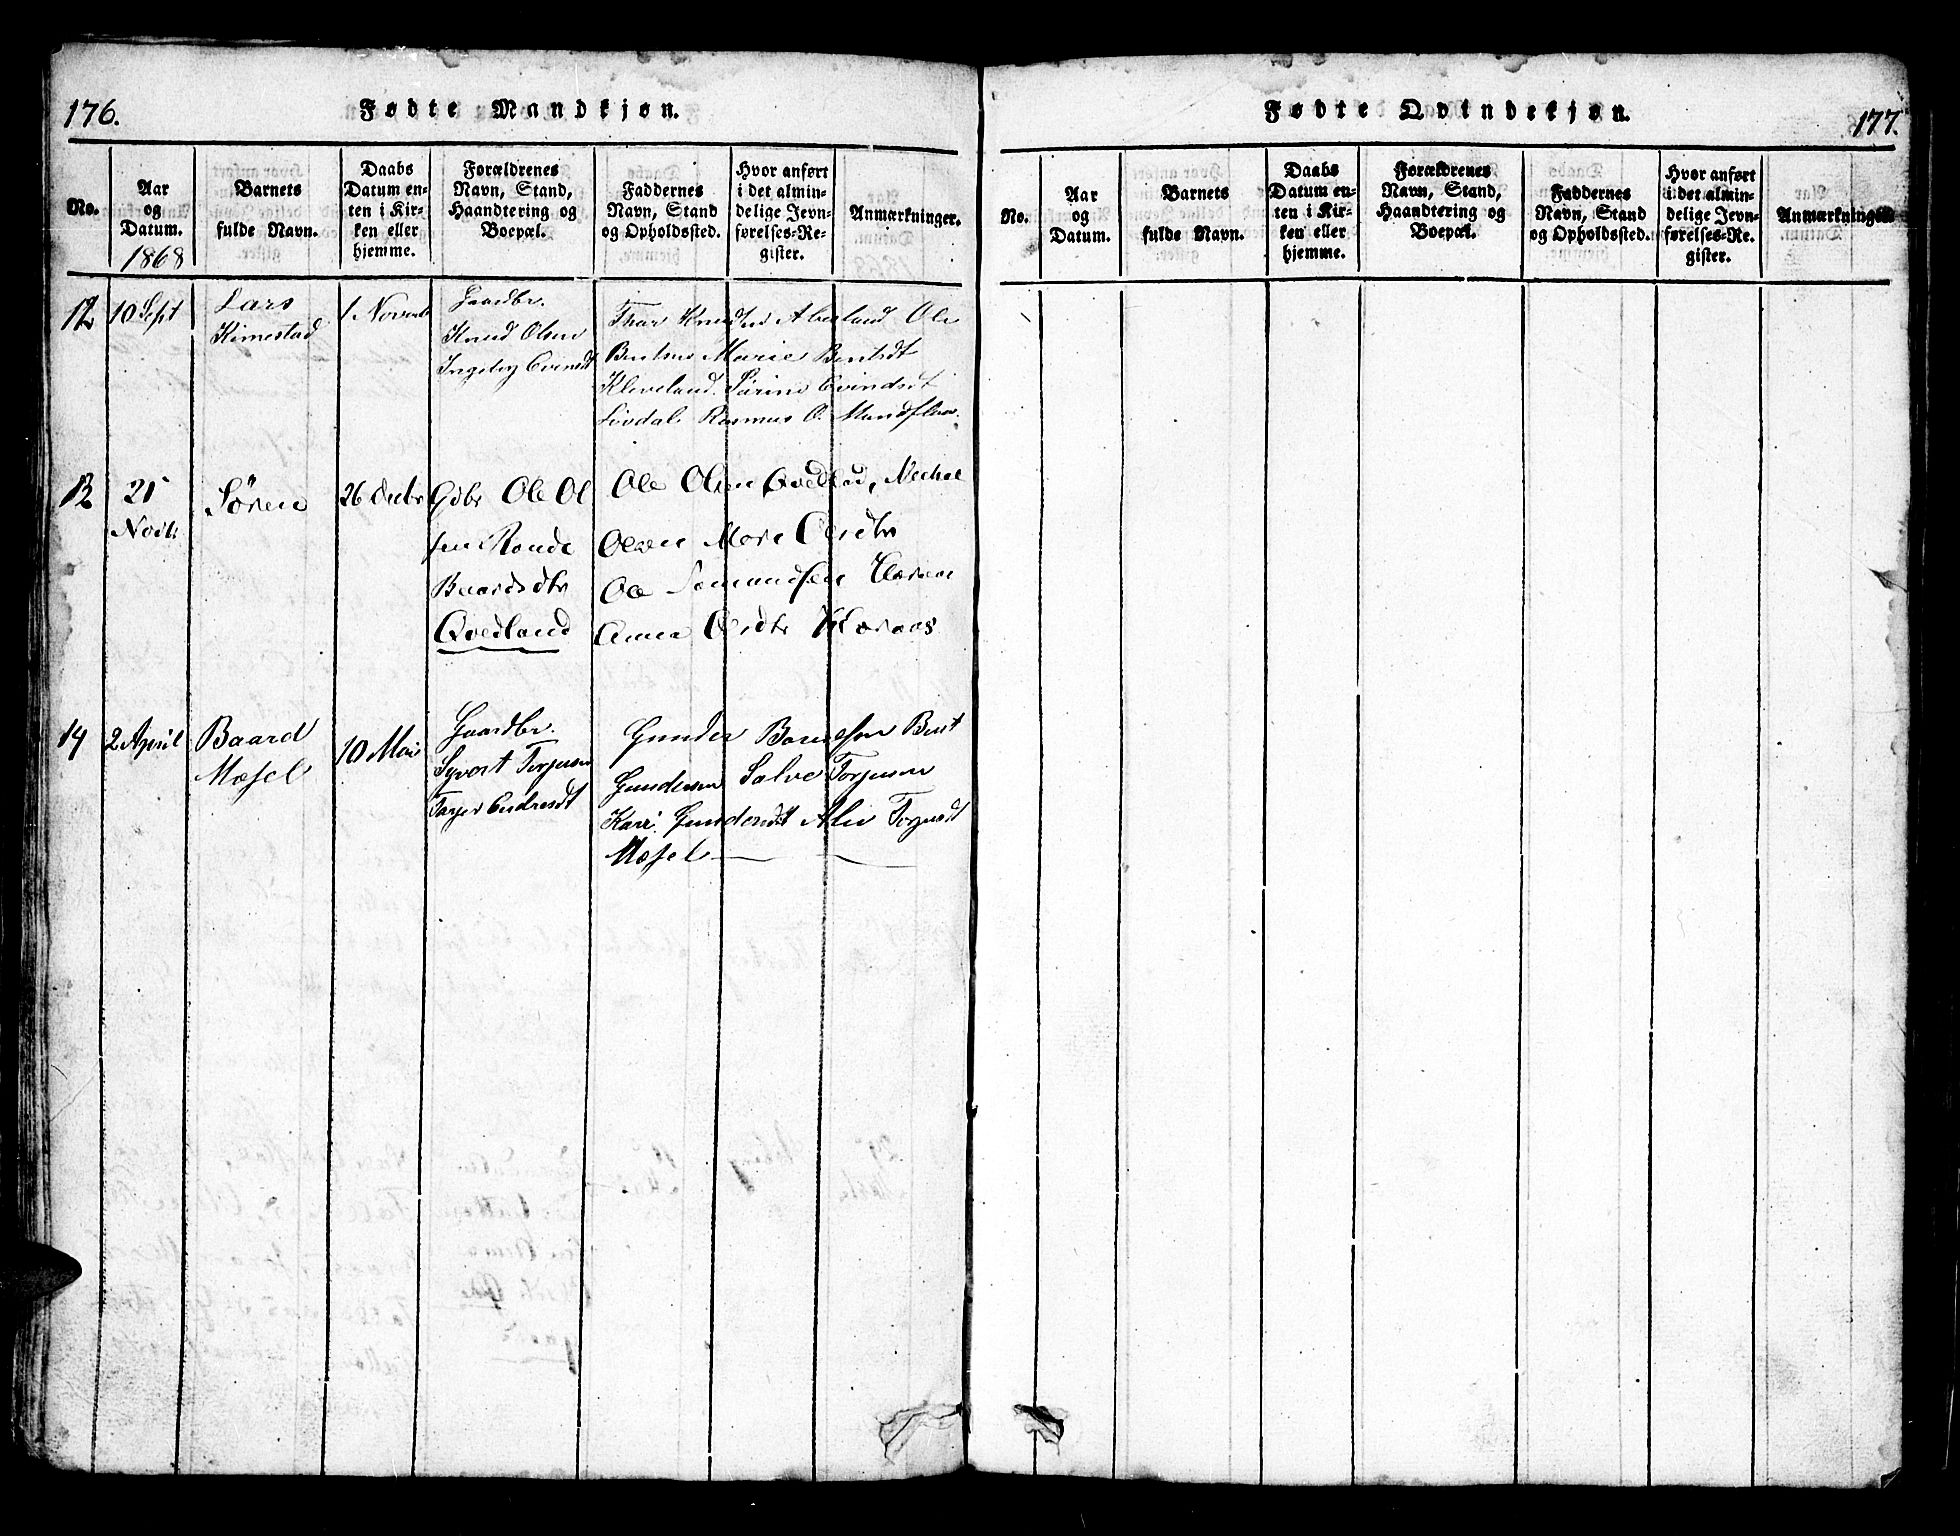 176.
Fødte Mandkjøn.
No.
Aar
og
Datum.
1868
Barnets
fulde Navn.
Daabs
Datum en-
ten i Kir-
ken eller
hjemme.
Forældrenes
Navn, Stand,
Haandtering og
Boepæl.
Faddernes
Navn, Stand
og Opholdssted.
Hvor anført
i det almin-
delige Jevn-
førelses-Re-
gister.
Anmærkninger.
12
10 Sept
Lars
Kimestad
1 Novemb
Gaardbr.
Knud Olsen
Ingeborg
Thor Knudsen Ole
Bentsen Marie Bentsdt
Kleveland. Sørine Evindsdt
Løvdal Rasmus O. Mandflaa.
13
21
Novb.
Søren
26 Decbr
Gdbr Ole Ol
sen
Baardsdtr
Qvedland
Ole Olsen Qvedland,
Olsen
Ole
Anna
14
2 April
Baard
Mæsel
10 Mai
Gaardbr.
Syvert Torjusen
Gunder Bent
Gundersen Salve Torjusen
Kari Gundersdt Torjusdt
Mæsel
Fødte Qvindekjøn.
177.
No.
Aar
og
Datum.
Barnets
fulde Navn.
Daabs
Datum en-
ten i Kir-
ken eller
hjemme.
Forældrenes
Navn, Stand,
Haandtering og
Boepæl.
Faddernes
Navn, Stand
og Opholdssted.
Hvor anført
i det almin-
delige Jevn-
førelses-Re-
gister.
Anmærkninger